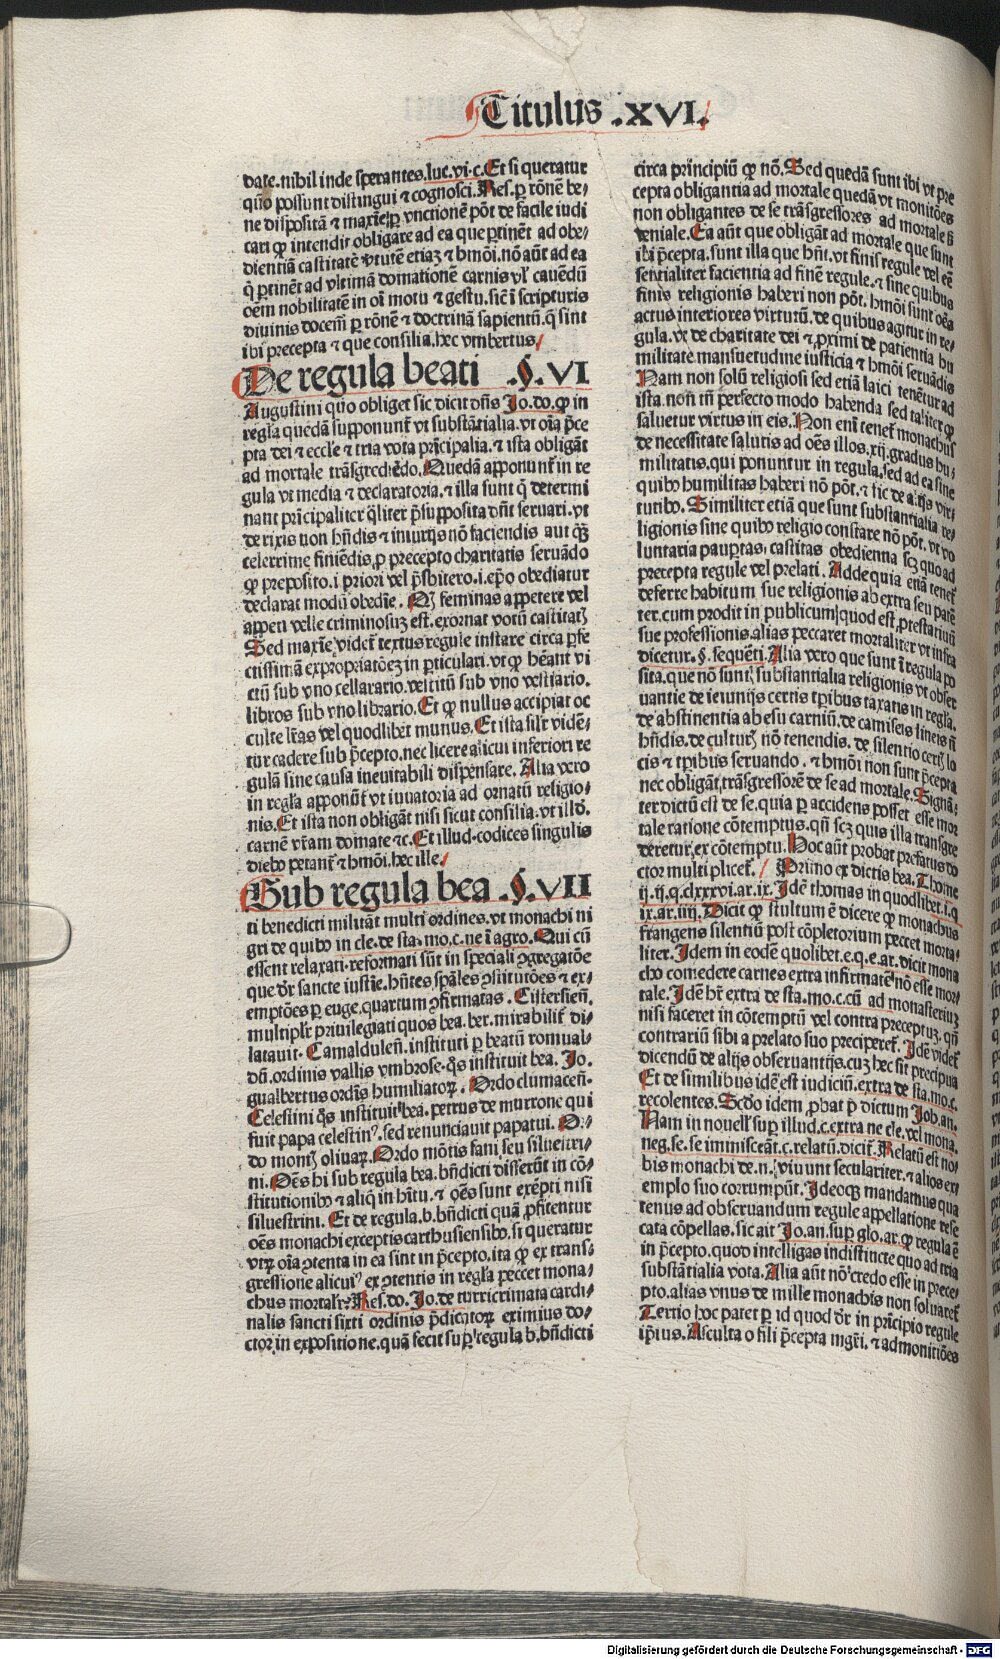 Titulus .XVI.
date.nihil inde sperantes.luc.vi.c.Et si queratur
quo possunt distingui ⁊ cognosci.Res.ꝑ rōnē be⸗
ne dispositā ⁊ maxīe ꝑ vnctionē pōt de facile iudi
cari ꝙ intendit obligare ad ea que ꝑtinēt ad obe⸗
dientiā castitatē v̓tutē etiaꝫ ⁊ hmōi.nō aūt ad ea
q̄ ꝑtinēt ad vltimā domationē carnis vl̓ cauēdū
oēm nobilitatē in oī motu ⁊ gestu.sic ī scripturis
diuinis docem̄ ꝑ rōnē ⁊ doctrinā sapientū.q̄ sint
ibi precepta ⁊ que consilia.hec vmbertus
De regula beati .§.VI
Augustini quo obliget sic dicit dn̄s Jo.do.ꝙ in
regl̓a quedā supponunt̄ vt substātialia.vt oīa p̄ce
pta dei ⁊ eccl̓e ⁊ tria vota prīcipalia.⁊ ista obligāt
ad mortale trāsgrediēdo.Quedā apponunt̄ in re
gula vt media ⁊ declaratoria.⁊ illa sunt q̄ determi
nant prīcipaliter q̄liter p̄supposita dn̄t seruari.vt
de rixis non hn̄dis ⁊ iniurijs nō faciendis aut qͣꝫ
celerrime finiēdis.ꝓ precepto charitatis seruādo
ꝙ preposito.i.priori vel p̄sbitero.i.ep̄o obediatur
declarat modū obedīe. Nꝫ feminas appetere vel
appeti velle criminosuꝫ est.exornat votū castitatꝭ
Sed maxīe videt̄ textus regule instare circa ꝑfe
ctissimā expropriatōeꝫ in ꝑticulari.vt ꝙ hēant vi
ctū sub vno cellarario.vestitū sub vno vestiario.
libros sub vno librario.Et ꝙ nullus accipiat oc
culte lr̄as vel quodlibet munus.Et ista sil̓r vidē⸗
tur cadere sub p̄cepto.nec licere alicui inferiori re
gulā sine causa ineuitabili dispensare. Alia vero
in regl̓a apponūt̄ vt iuuatoria ad ornatū religio⸗
nis.Et ista non obligāt nisi sicut consilia.vt illd̓.
carnē vr̄am domate ⁊c.Et illud.codices singulis
diebꝰ petant̄ ⁊ hmōi.hec ille.
Sub regula bea .§.VII
ti benedicti militāt multi ordines.vt monachi ni
gri de quibꝰ in cle.de sta.mo.c.ne ī agro.Qui cū
essent relaxati.reformati sūt in speciali ꝯgregatōe
que dr̄ sancte iustīe.hn̄tes spāles ꝯstitutōes ⁊ ex⸗
emptōes ꝑ euge.quartum ꝯfirmatas. Cistersien̄.
multipl̓r priuilegiati quos bea.ber.mirabilit̄ di⸗
latauit. Camaldulen̄.instituti ꝑ beatū romual⸗
dū.ordinis vallis vmbrose.q̄s instituit bea. Jo.
gualbertus ordīs humiliatoꝝ. Ordo clumacen̄.
Celestini q̄s instituit bea.petrus de murrone qui
fuit papa celestinꝰ.sed renunciauit papatui. Or⸗
do montꝭ oliuaꝝ.Ordo mōtis fani seu siluestri⸗
ni.Oēs hi sub regula bea.bn̄dicti differūt in cō⸗
stitutionibꝰ ⁊ aliq̄ in hītu.⁊ oēs sunt exēpti nisi
siluestrini. Et de regula.b.bn̄dicti quā ꝓfitentur
oēs monachi exceptis carthusiensibꝰ.si queratur
vtꝝ oīa ꝯtenta in ea sint in p̄cepto.ita ꝙ ex trans⸗
gressione alicuiꝰ ex ꝯtentis in regl̓a peccet mona⸗
chus mortalr̓? Res.do. Jo.de turricrimata cardi⸗
nalis sancti sixti ordinis p̄dicatoꝝ eximius do⸗
ctor.in expositione.quā fecit suꝑ regula b.bn̄dicti
circa prīncipiū ꝙ nō.Sed quedā sunt ibi vt pre
cepta obligantia ad mortale quedā vt monitōes
non obligantes de se trāsgressores ad mortale s̄
veniale.Ea aūt que obligāt ad mortale que sunt
ibi p̄cepta.sunt illa que hn̄t.vt finis regule vel eē
sentialiter facientia ad finē regule.⁊ sine quibus
finis religionis haberi non pōt.hmōi sunt oēs
actus interiores virtutū.de quibus agitur in re⸗
gula.vt de charitate dei ⁊ ꝓximi de patientia hu
militate mansuetudine iusticia ⁊ hmōi seruādis
Nam non solū religiosi sed etiā laici tenētur ad
ista.non tn̄ perfecto modo habenda sed taliter ꝙ
saluetur virtus in eis.Non eni tenet̄ monachus
de necessitate salutis ad oēs illos.xij.gradus hu⸗
militatis.qui ponuntur in regula.sed ad ea sine
quibꝰ humilitas haberi nō pōt.⁊ sic de alijs vir⸗
tutibꝰ. Similiter etiā que sunt substantialia re⸗
ligionis sine quibꝰ religio constare nō pōt.vt vo
luntaria pauꝑtas.castitas obedienna scꝫ quo ad
precepta regule vel prelati. Adde quia etiā tenet̄
deferre habitum sue religionis ab extra seu patē
ter.cum prodit in publicum quod est ꝓtestatiuū
sue professionis.alias peccaret mortaliter vt infra
dicetur.§.sequēti.Alia vero que sunt ī regula po
sita.que nō suntꝭ substantialia religionis vt obser
uantie de ieiunijs certis tꝑibus taxatis in regl̓a.
de abstinentia ab esu carniū.de camiseis lineis n̄
hn̄dis.de culturꝭ nō tenendis. de silentio certꝭ lo
cis ⁊ tꝑibus seruando. ⁊ hmōi non sunt p̄cepta
nec obligāt.trāsgressorē de se ad mortale.Signā⸗
ter dictū est de se.quia ꝑ accidens posset esse mor
tale ratione cōtemptus.qn̄ scꝫ quis illa transḡre
deretur.ex cōtemptu.Hoc aūt probat prefatus do
ctor multiplicet̄. Primo ex dictis bea.Thome
ij.ij.q.clxxxvi.ar.ix.Jdē thomas in quodlibet.i.q
ix.ar.iiij.Dicit ꝙ stultum ē dicere ꝙ monachus
frangens silentiū post cōpletorium peccet morta⸗
liter.Jdem in eodē quolibet.e.q.e.ar.dicit mona
chꝰ comedere carnes extra infirmatē nō esse mor⸗
tale.Jdē hr̄ extra de sta.mo.c.cū ad monasteriuꝫ
nisi faceret in cōtemptū vel contra preceptuꝫ.qn̄
contrariū sibi a prelato suo preciperet̄. Jdē videt̄
dicendū de alijs obseruantijs.cuꝫ hec sit precipua
Et de similibus idē est iudiciū.extra de sta.mo.c.
recolentes. Scd̓o idem ꝓbat ꝑ dictum Joh.an.
Nam in nouell̓ suꝑ illud.c.extra ne cle.vel mona.
neg.se.se immisceāt.c.relatū.dicit̄.Relatū est no⸗
bis monachi de.n.viuunt seculariter.⁊ alios ex⸗
emplo suo corrumpūt.Jdeoqꝫ mandamus qua
tenus ad obseruandum regule appellatione rese
cata cōpellas.sic ait Jo.an.suꝑ glo.ar.ꝙ regula ē
in p̄cepto.quod intelligas indistincte quo ad tria
substātialia vota.Alia aūt nō credo esse in prece⸗
pto.alias vnus de mille monachis non saluaret̄
Tertio hoc patet ꝑ id quod dr̄ in prīcipio regule
ip̄ius.Asculta o fili p̄cepta mgr̄i.⁊ admonitiōes
Digitalisierung gefördert durch die Deutsche Forschungsgemeinschaft - DFG